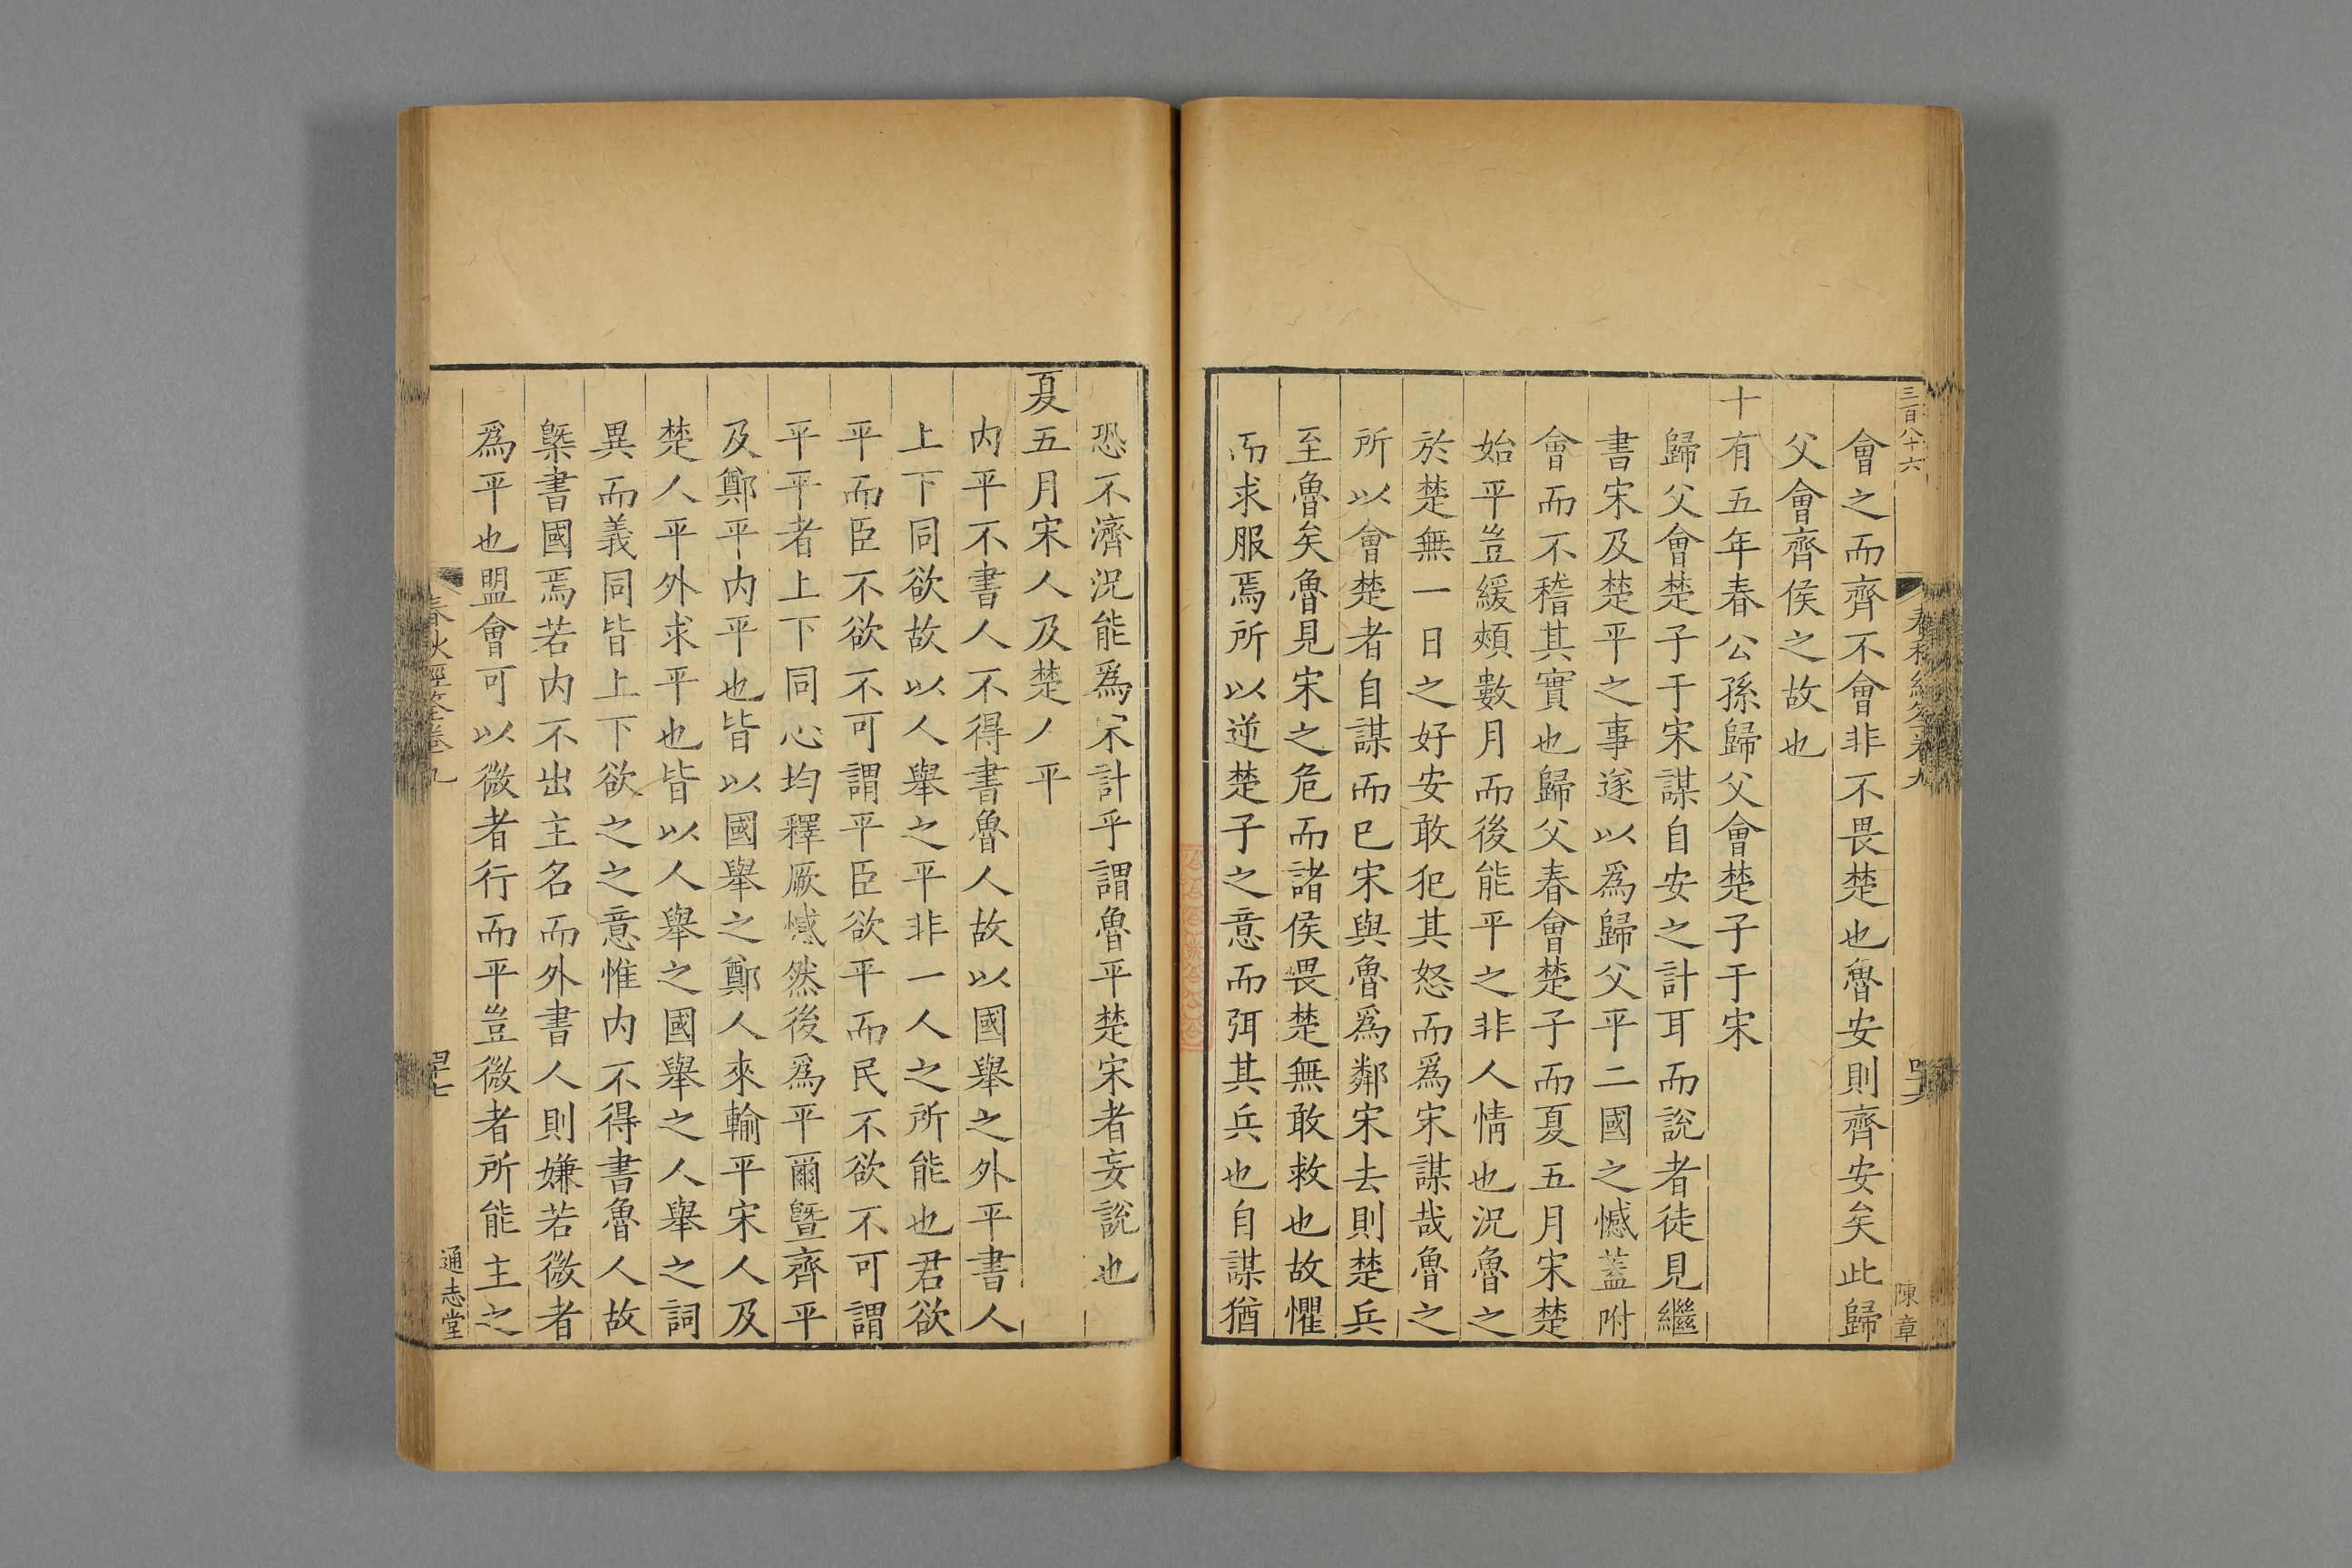 三百八十六
陳章
會之而齊不會非不畏楚也魯安則齊安矣此歸
父會齊侯之故也
十有五年春公孫歸父會楚子于宋
歸父會楚子于宋謀自安之計耳而說者徒見繼
書宋及楚平之事遂以爲歸父平二國之憾蓋附
會而不稽其實也歸父春會楚子而夏五月宋楚
始平豈緩頰數月而後能平之非人情也況魯之
於楚無一日之好安敢犯其怒而爲宋謀哉魯之
所以會楚者自謀而已宋與魯爲鄰宋去則楚兵
至魯矣魯見宋之危而諸侯畏楚無敢救也故懼
而求服焉所以逆楚子之意而弭其兵也自謀猶
恐不濟況能爲宋計乎謂魯平楚宋者妄說也
夏五月宋人及楚人平
內平不書人不得書魯人故以國舉之外平書人
上下同欲故以人舉之平非一人之所能也君欲
平而臣不欲不可謂平臣欲平而民不欲不可謂
平平者上下同心均釋厥憾然後爲平爾曁齊平
及鄭平內平也皆以國舉之鄭人來輸平宋人及
楚人平外求平也皆以人舉之國舉之人舉之詞
異而義同皆上下欲之之意惟內不得書魯人故
槩書國焉若內不出主名而外書人則嫌若微者
爲平也盟會可以微者行而平豈微者所能主之
春秋經筌卷九
四十七
通志堂